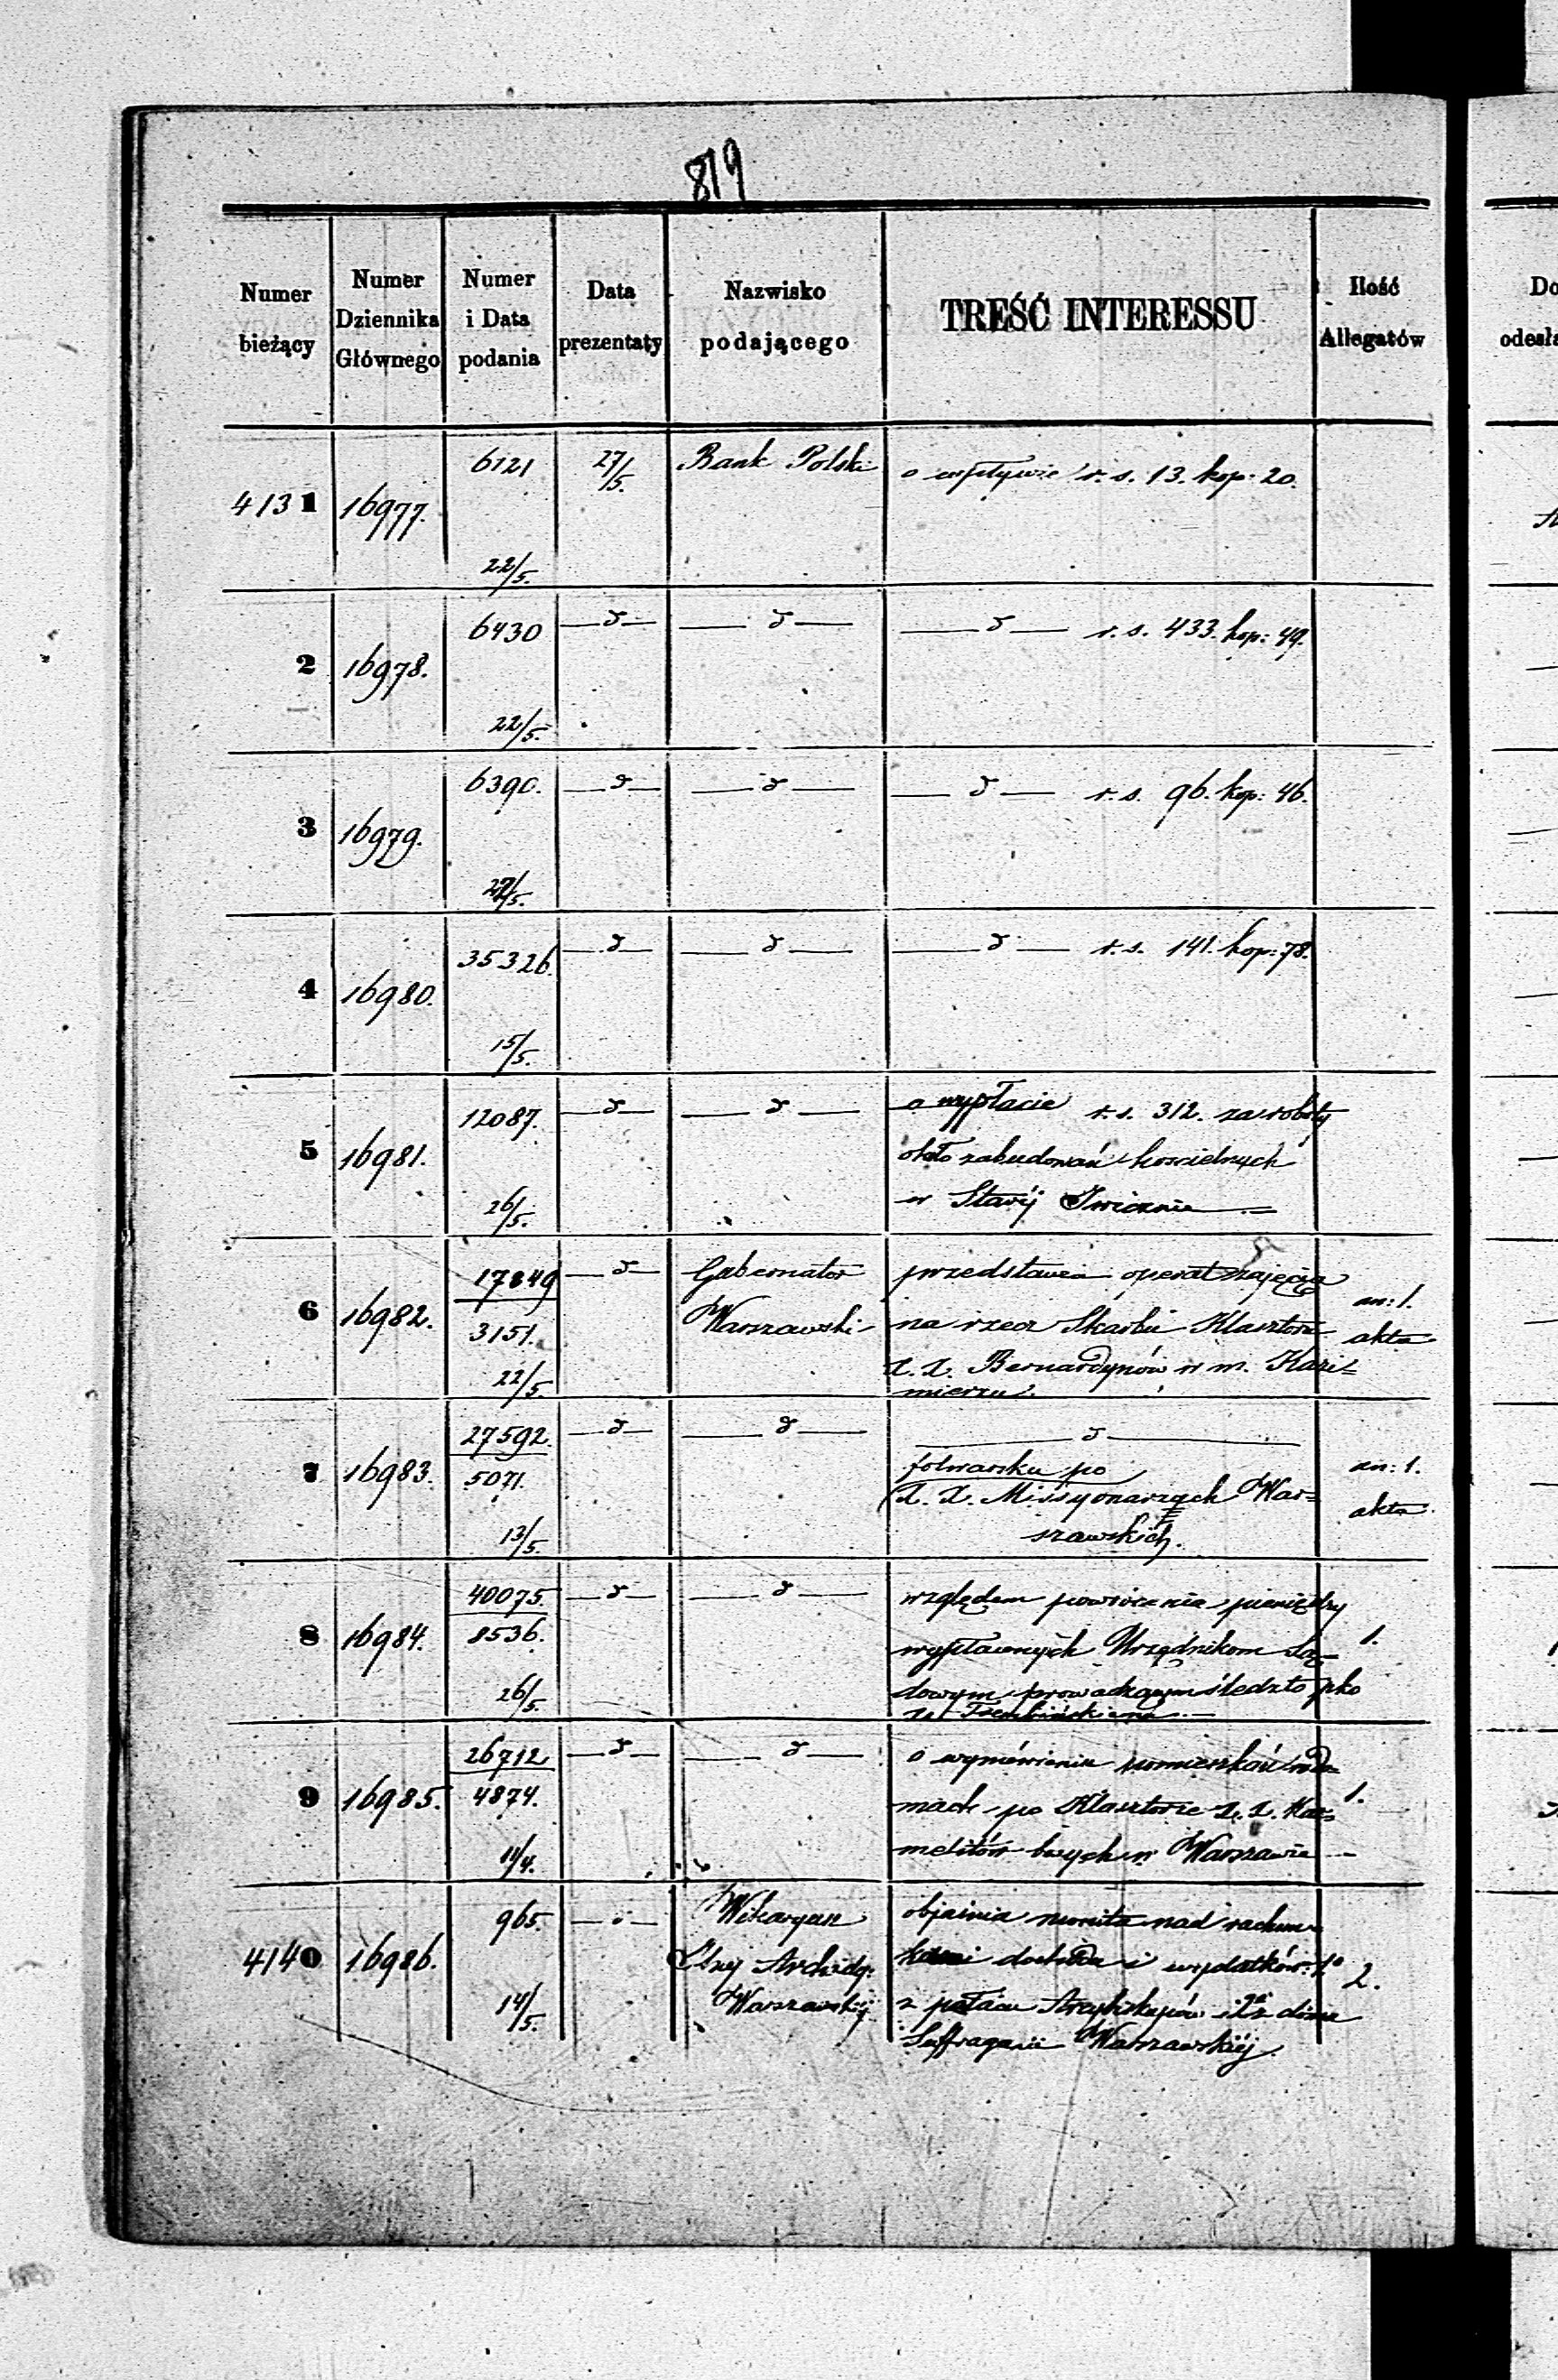 819
Numer bieżący | Numer Dziennika Głównego | Numer i Data podania | Data prezentaty | Nazwisko podającego | TREŚĆ INTERESSU | Ilość Allegatów
4131 | 16977. | 6121 | 27/5. | Bank Polski | o wpływie r. s. 13. kop: 20.
22/5.
2 | 16978. | 6430 | —d— | —d— | —d— r. s. 433. kop: 49.
22/5.
3 | 16979. | 6390. | —d— | —d— | —d— r. s. 96. kop: 46.
4 | 16980. | 35326. | —d— | —d— | —d— r. s. 141. kop: 78.
15/5.
5 | 16981. | 12087. | —d— | —d— | o wypłacie r. s. 312. za roboty
około zabudowań kościelnych
26/5. | w Staréj Iwicznie
6 | 16982. | 17849 | —d— | Gubernator | przedstawia operat zajęcia | an: 1.
3151. | Warszawski | na rzecz Skarbu Klasztoru | akta
22/5. | X. X. Bernardynów w m. Kazi=
mierzu.
7 | 16983. | 27592. | —d— | —d— | —d—
5071. | folwarku po | an: 1.
X. X. Missyonarzach War= | akta.
13/5. | szawskich.
8 | 16984. | 40075. | —d— | —d— | względem powrócenia pieniędzy
8536. | wypłaconych Urzędnikom Są= | 1.
26/5. | dowym prowadzącym śledztwo pko
9 | 16985. | 26712 | —d— | —d— | o wymówieniu pomieszkań w do=
4874. | mach po Klasztorze X. X. Kar= | 1.
11/4. | melitów bosych w Warszawie
4140 | 16986. | 965. | —d— | Wikaryusz | objaśnia monita nad rachun=
Archidy: | dochodu i wydatków: 1o | 2.
14/5. | Warszawskiéj | z pałacu Arcybiskupów i 2o z domu
Suffraganii Warszawskiéj.
Do
odesła